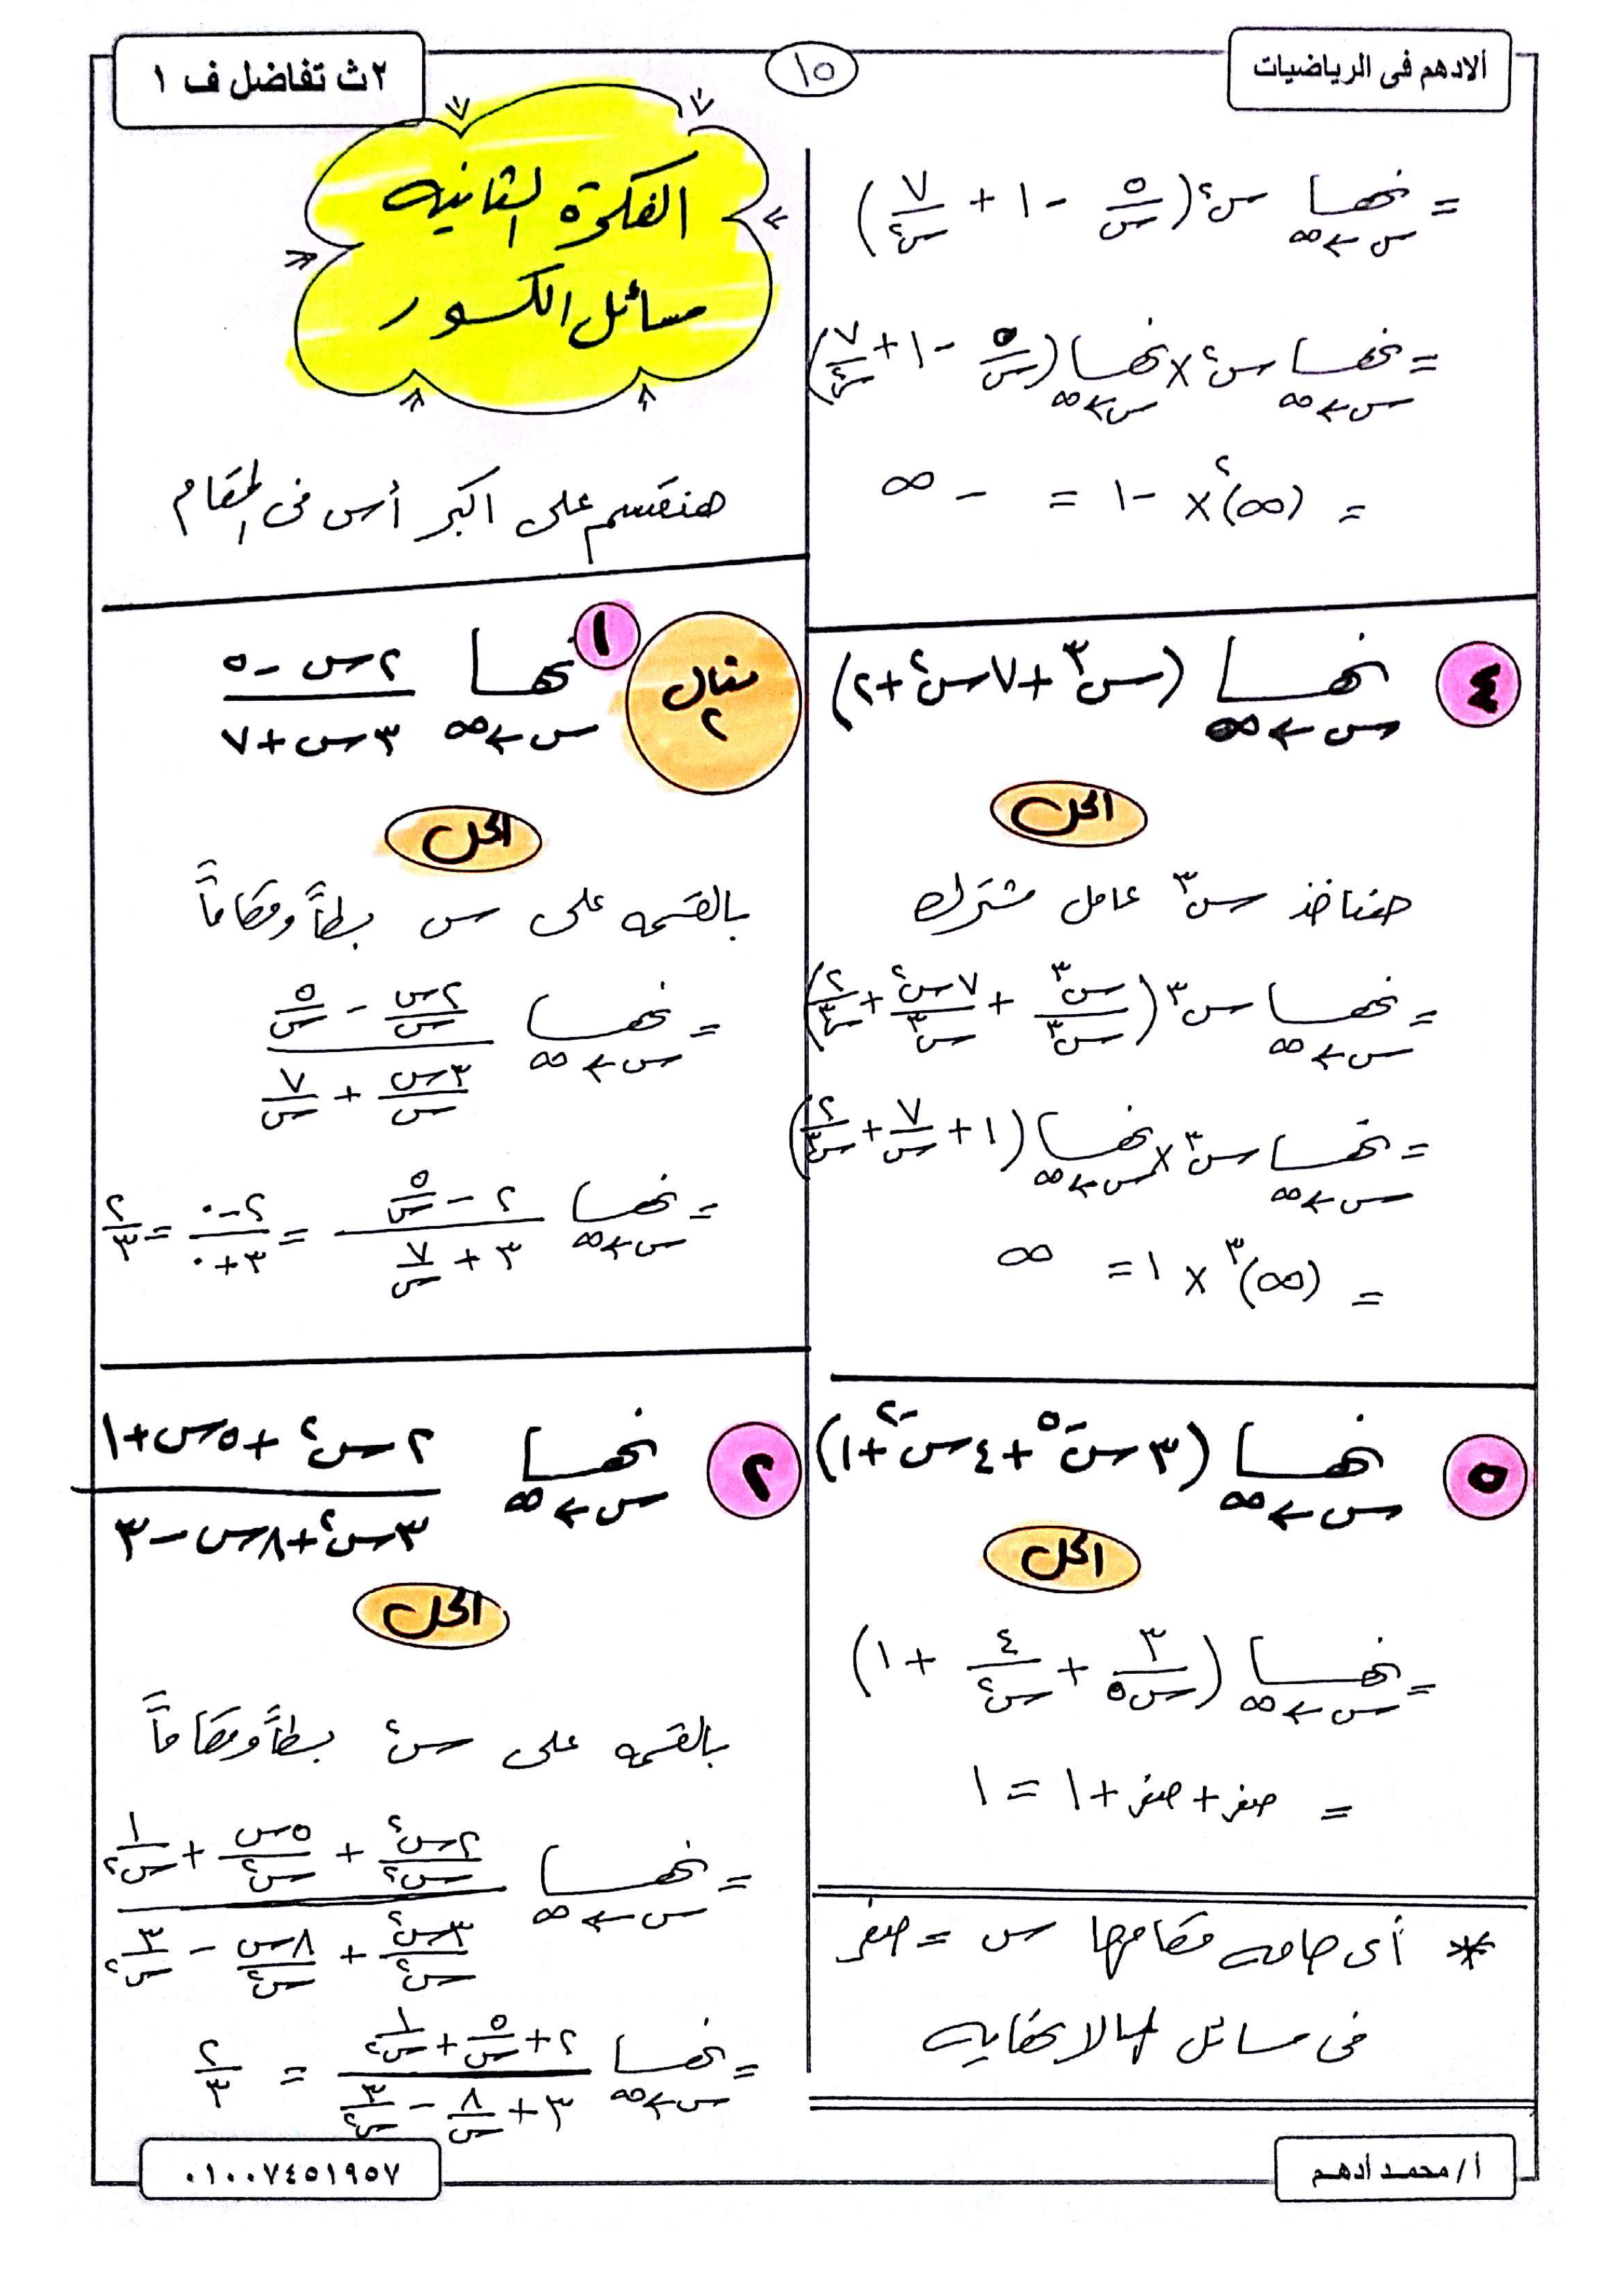 ألادهم فى الرياضيات
١٥
٢ث تفاضل ف ١
= نهـــا س←∞ س٢ (٥/س - ١ + ٧/س٢)
= نهـــا س←∞ س٢ × نهـــا س←∞ (٥/س - ١ + ٧/س٢)
= (∞)٢ × -١ = -∞
٤ نهـــا س←∞ (س٣ + ٧س٢ + ٢)
الحل
هناخذ س٣ عامل مشترك
= نهـــا س←∞ س٣ (س٣/س٣ + ٧س٢/س٣ + ٢/س٣)
= نهـــا س←∞ س٣ × نهـــا س←∞ (١ + ٧/س + ٢/س٣)
= (∞)٣ × ١ = ∞
٥ نهـــا س←∞ (٣س-٥ + ٤س-٢ + ١)
الحل
= نهـــا س←∞ (٣/س٥ + ٤/س٢ + ١)
= صفر + صفر + ١ = ١
* أى حاجه مقامها س = صفر
فى مسائل المالانهايه
الفكرة الثانيه
مسائل الكسور
هنقسم على اكبر أس فى المقام
مثال ٢
١ نهـــا س←∞ (٢س - ٥)/(٣س + ٧)
الحل
بالقسمه على س بسطاً ومقاماً
= نهـــا س←∞ (٢س/س - ٥/س)/(٣س/س + ٧/س)
= نهـــا س←∞ (٢ - ٥/س)/(٣ + ٧/س) = (٢ - ٠)/(٣ + ٠) = ٢/٣
٢ نهـــا س←∞ (٢س٢ + ٥س + ١)/(٣س٢ + ٨س - ٣)
الحل
بالقسمه على س٢ بسطاً ومقاماً
= نهـــا س←∞ (٢س٢/س٢ + ٥س/س٢ + ١/س٢)/(٣س٢/س٢ + ٨س/س٢ - ٣/س٢)
= نهـــا س←∞ (٢ + ٥/س + ١/س٢)/(٣ + ٨/س - ٣/س٢) = ٢/٣
أ/ محمد أدهم
٠١٠٠٧٤٥١٩٥٧